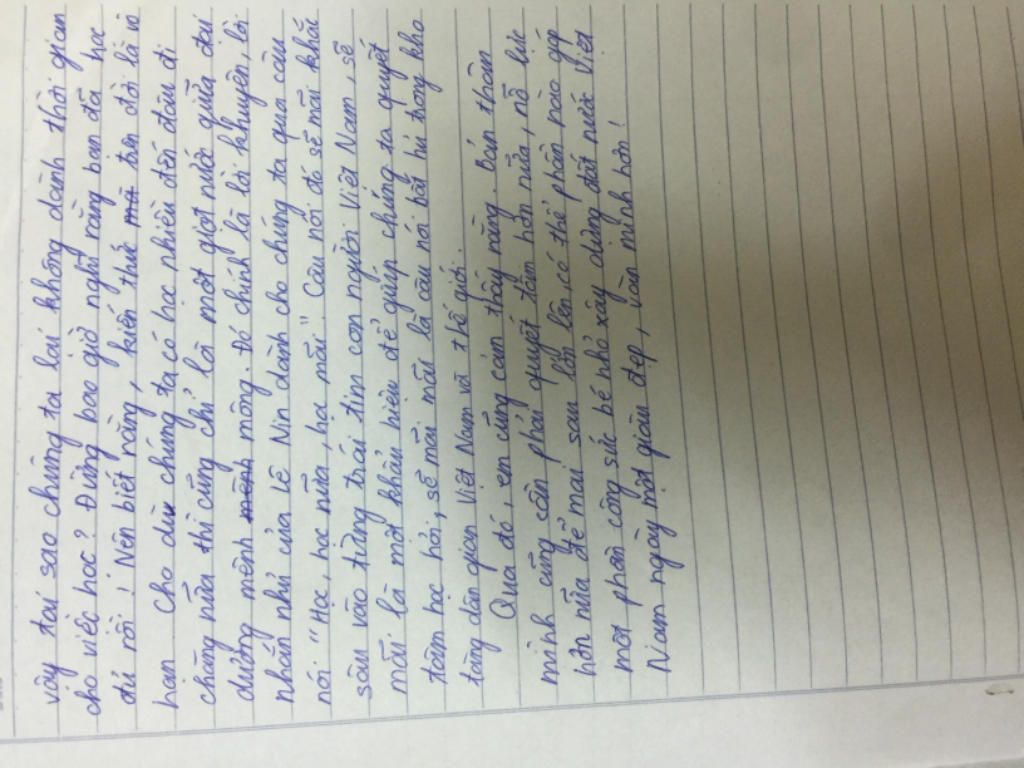 vậy tại sao chúng ta lại không dành thời gian
cho việc học? Đừng bao giờ nghĩ rằng bạn đã học
đủ rồi! Nên biết rằng, kiến thức trên đời là vô
hạn cho dù chúng ta có học nhiều đến đâu đi
chăng nữa thì cũng chỉ là một giọt nước giữa đại
dương mênh mông. Đó chính là lời khuyên, lời
nhắn nhủ của Lê Nin dành cho chúng ta qua câu
nói "Học, học nữa, học mãi". Câu nói đó sẽ mãi khắc
sâu vào từng trái tim con người Việt Nam, sẽ
mãi là một khẩu hiệu để giúp chúng ta quyết
tâm học hỏi, sẽ mãi mãi là câu nói bất hủ trong kho
tàng dân gian Việt Nam và thế giới.
Qua đó, em cũng cảm thấy rằng. bản thân
mình cũng cần phải quyết tâm hơn nữa, nỗ lực
hơn nữa để mai sau lớn lên có thể phần nào góp
một phần công sức bé nhỏ xây dựng đất nước Việt
Nam ngày một giàu đẹp, văn minh hơn!